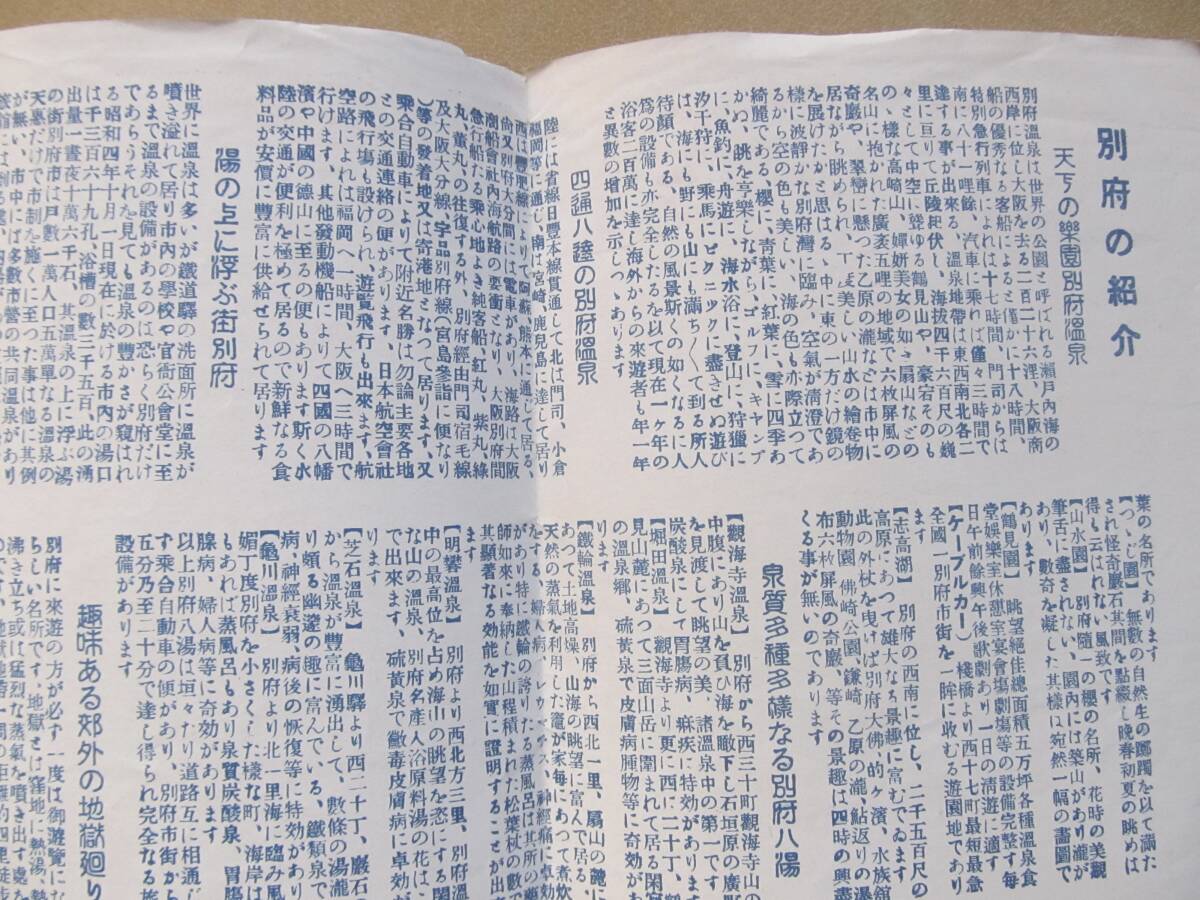 別府の紹介
天下の樂園別府溫泉
別府溫泉は世界の公園と呼ばれる瀨戸內海の
西岸に位し大阪を去る二百二十六浬、大阪商
船の優秀なる客船によると僅か十八時間、
特別急行列車によれば十七時間、門司からは
南に八十一哩餘、汽車に乘れば僅々三時間で
達する事が出來る、溫泉地帶は東西南北各二
里に亘つて丘陵起伏し、海拔四千六百尺の巍
々として中空に聳ゆる鶴見山や、豪岩そのも
の丶樣な高崎山、嬋妍美女の如き扇山などの
名山に抱かれた廣袤五哩の地域で六枚屏風の
奇巖や、翠巒に懸つた乙原の瀧などは市中に
居ながら眺められ、丁度美しい山水の繪卷物
を展げたかと思はる丶中に東の一方だけ鏡の
樣に波靜かな別府灣に臨み、空氣が淸澄であ
るから空の色も美しい、海の色も亦際立つて
綺麗である、櫻に靑葉に、紅葉に、雪に四季
かぬ、眺を亨樂しながら、ゴルフに、キヤンプ
に、魚釣に、舟遊に、海水浴に、登山に、狩獵に
汐干狩に、乘馬にピクニツクに盡きせぬ遊び
は、海にも、野にも山にも滿ち〱てる所に人
待顏である、自然の風景斯くの如くなるに人
爲の設備も亦完全したるを以て現在一ヶ年の
浴客二百萬に達し海外からの來遊者も年一年
と異數の增加を示しつ丶あります
四通八達の別府溫泉
陸には省線日豐本線貫通して北は門司、小倉
福岡等に通じ、南は宮崎、鹿兒島に達して居り
西は豐肥線によりて阿蘇、熊本に通じて居る、
尙又別府大分間には電車があり、海路は大阪
商船會社內海航路の要衝となり、大阪別府間
急行船たる乘心地よき純客船、紅丸、紫丸、綠
丸、菫丸の往復する外、別府經由門司宿毛線
及大阪大分線、宇品別府線(宮島參詣に便なり
)等の發着地又は寄港地となつて居ります、又
乘合自動車によりて附近名勝は勿論主要各地
との交通連絡の便があります、日本航空會社
の飛行塲も設けられ、遊覽飛行も出來ます、航
空路によれば福岡へ一時間、大阪へ三時間で
行けます、其他發動機船によりて四國の八幡
濱や中國の德山に至るの便もあります斯く水
陸の交通が便利を極めて居るので新鮮なる食
料品が安價に豐富に供給せられて居ります
湯の上に浮ぶ街別府
世界に溫泉は多いが鐵道驛の洗面所に溫泉が
噴き溢れて居り市內の學校や官衙公會堂に至
るまで溫泉の設備があるのは恐らく別府だけ
であらうそれを見ても溫泉の豐かさが窺はれ
る昭和四年十月一日現在に於ける市內の湯口
は千三百六十九孔、浴槽の數三千五百、此の湧
出量一晝夜十萬六千石、其溫泉の上に浮ぶ湯
の街別府市は戸數一萬人口五萬單なる溫泉の
天惠だけで市制を施くに至つた事は他に其例
が無い、市中には多數市營の共同溫泉があり
葉の名所であります
【つゝじ園】 無數の自然生の躑躅を以て滿た
され怪奇巖石其間を點綴し晚春初夏の眺めは
得も云はれない風致です
【山水園】 別府隨一の櫻の名所、花時の美觀
筆舌に盡されない、園內には築山があり瀧が
あり、數奇を凝した其樣は宛然一幅の畵圖で
あります
【鶴見園】 眺望絕佳總面積五万坪各種溫泉食
堂娛樂室休憩室宴會塲劇塲等の設備完整す每
日午前餘興午後歌劇あり一日の淸遊に適す
【ケーブルカー】 棧橋より西十七町最短最急
全國一別府市街を一眸に收むる遊園地であり
ます
【志高湖】 別府の西南に位し、二千五百尺の
高原にあつて雄大なる景趣に富むでゐます
此の外杖を曳けば別府大佛、的ヶ濱、水族舘
動物園 佛崎公園、鎌崎、乙原の瀧、鮎返りの瀑
布六枚屏風の奇巖、等その景趣は四時の興盡
くる事が無いのであります
泉質多種多樣なる別府八湯
【觀海寺溫泉】 別府から西三十町觀海寺山の
中腹にあり山を負ひ海を瞰下し石垣原の廣野
を見渡して眺望の美、諸溫泉中の第一です、
炭酸泉にして胃膓病、麻疾に特効があります
【堀田溫泉】 觀海寺より更に西に二十丁、鶴
見山麓にあつて三面山岳に圍まれて居る閑寂
の溫泉鄕、硫黃泉で皮膚病腫物等に奇効があ
ります
【鐵輪溫泉】 別府から西北一里、扇山の麓に
あつて土地高燥、山海の眺望に富んで居る、
天然の蒸氣を利用した竈が家每にあつて煮炊
をする、婦人病、レウマチス、神經痛に卓効
があり特に鐵輪の誇りたる蒸風呂は其所の藥
師如來に奉納した山程積まれた松葉杖の數で
其顯著なる効能を如實に證明することが出來
【明礬溫泉】 別府より西北方三里、別府溫泉
中の最高位を占め海山の眺望を恣にする閑
な山の溫泉、別府名產入浴原料湯の花は、
で出來ます、硫黃泉で黴毒皮膚病に卓効が
ります
【芝石溫泉】 龜川驛より西二十丁、巖石
から溫泉が豐富に湧出して、數條の湯瀧
り頗る幽邃の趣に富んでいる、鐵類泉で
病、神經衰弱、病後の恢復等に特効があり
【龜川溫泉】 別府より北一里海に臨み風
媚丁度別府を小さくした樣な町、海岸は
もあれば蒸風呂もあり泉質炭酸泉、胃膓
膓病、婦人病等に奇効があります
以上別府八湯は垣々たり道路互に相通じ
ず乘合自動車の便があり、別府市街から
五分乃至二十分で達し得られ完全なる旅
設備があります
趣味ある郊外の地獄廻り
別府に來遊の方が必ず一度は御遊覽にな
らしい名所です、地獄とは窪地に熱湯、熱
沸き立ち或は猛烈な蒸氣を噴き出す處を